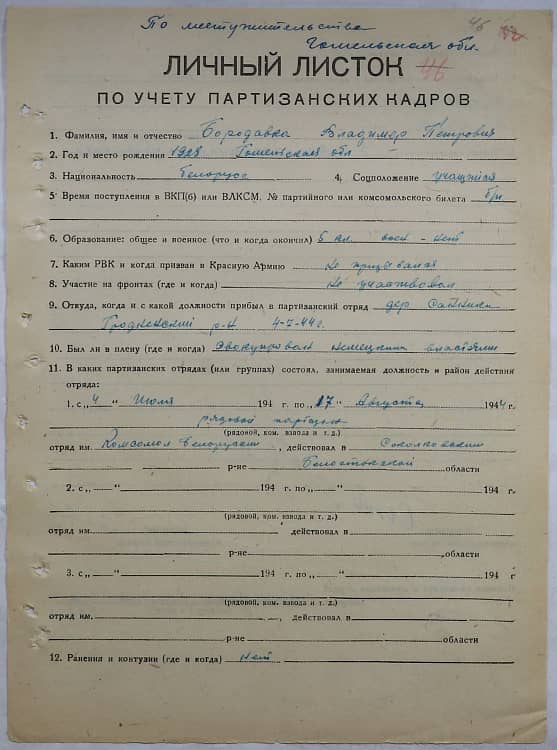 По местужительства 46
Гомельская обл.
ЛИЧНЫЙ ЛИСТОК 46
ПО УЧЕТУ ПАРТИЗАНСКИХ КАДРОВ
1. Фамилия, имя и отчество Бородавка Владимер Петрович
2. Год и место рождения 1928 Гомельская обл
3. Национальность белорусс 4. Соцположение учащийся
5 Время поступления в ВКП(б) или ВЛКСМ. № партийного или комсомольского билета б/п
6. Образование: общее и военное (что и когда окончил) 5 кл. воен - нет
7. Каким РВК и когда призван в Красную Армию не призывался
8. Участие на фронтах (где и когда) не участвовал
9. Откуда, когда и с какой должности прибыл в партизанский отряд дер
Гродненский р-н 4-7-44г.
10. Был ли в плену (где и когда) Эвакуирован немецкими властями
11. В каких партизанских отрядах (или группах) состоял, занимаемая должность и район действия
отряда:
1. с „4 " Июля 194 г. по „17" Августа 1944г.
рядовой партизан
(рядовой, ком. взвода и т. д.)
отряд им. Комсомол Белоруссии, действовал в Сокольском
р-не Белостокской области
2. с „ " 194 г. по „ " 194 г.
(рядовой, ком. взвода и т. д.)
отряд им. действовал в
р-не области
3. с „ " 194 г. по „ " 194 г.
(рядовой, ком. взвода и т. д.)
отряд им. , действовал в
р-не области
12. Ранения и контузии (где и когда) нет